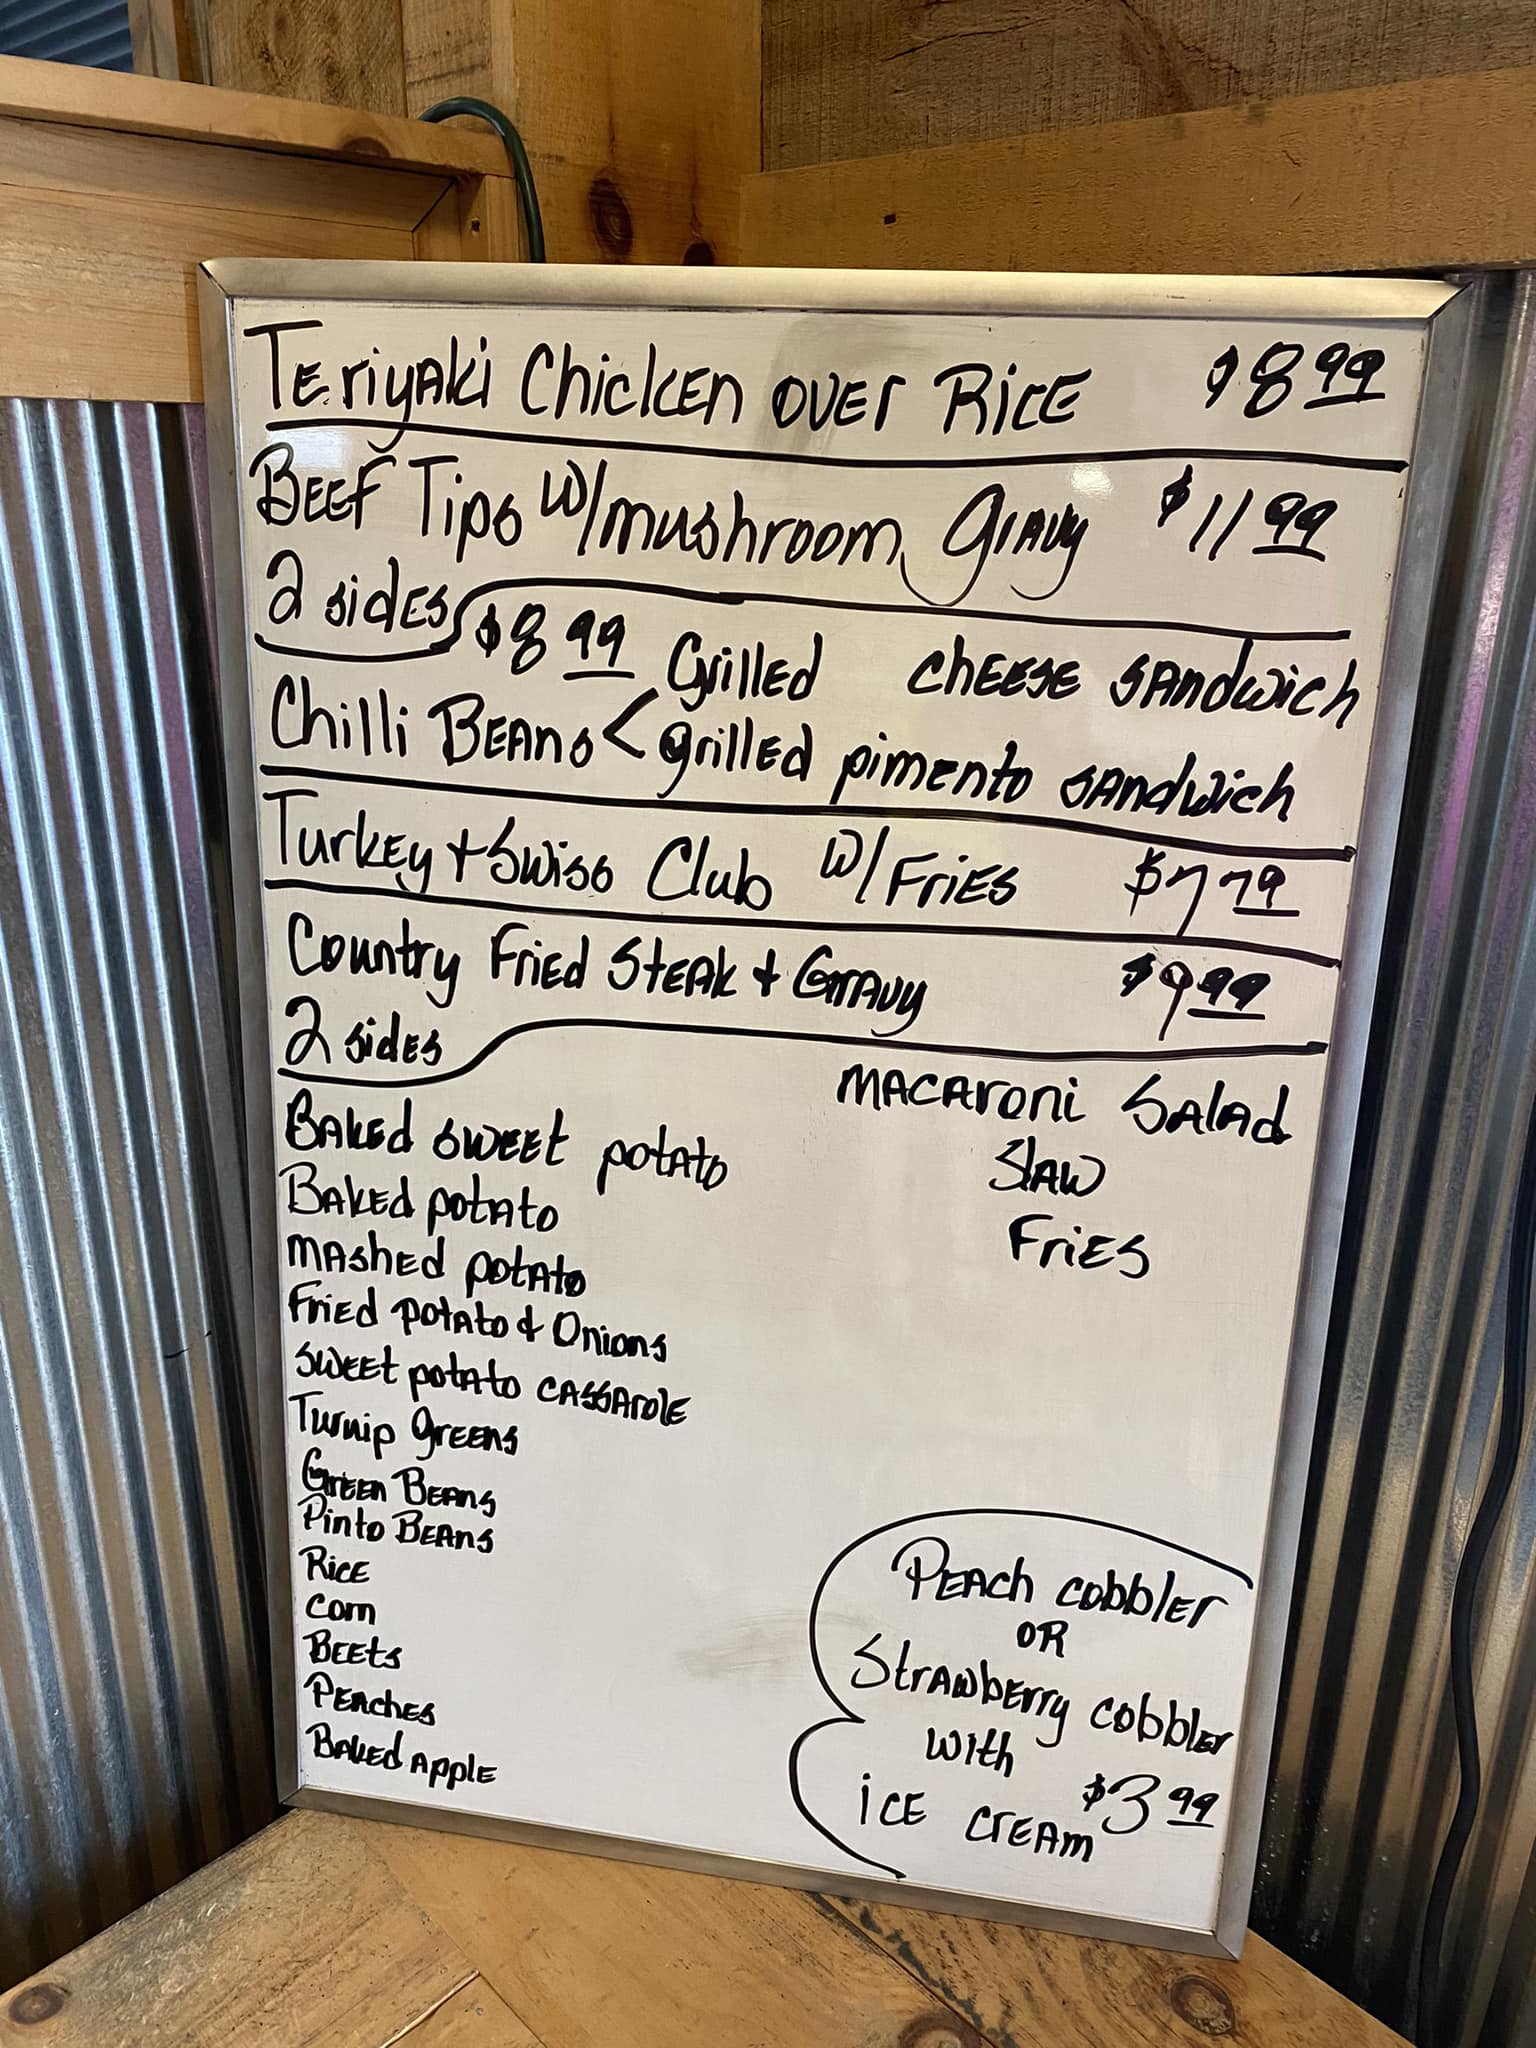 Teriyaki Chicken over Rice $8.99
Beef Tips w/mushroom Gravy $11.99
2 sides
$8.99 Grilled cheese sandwich
Chilli Beans < grilled pimento sandwich
Turkey + Swiss Club w/Fries $7.79
Country Fried Steak + Gravy $9.99
2 sides
Baked sweet potato
Baked potato
mashed potato
Fried potato & Onions
sweet potato cassarole
Turnip greens
Green Beans
Pinto Beans
Rice
corn
Beets
Peaches
Baked Apple
macaroni Salad
Slaw
Fries
Peach cobbler
OR
Strawberry cobbler
with
ice cream $3.99